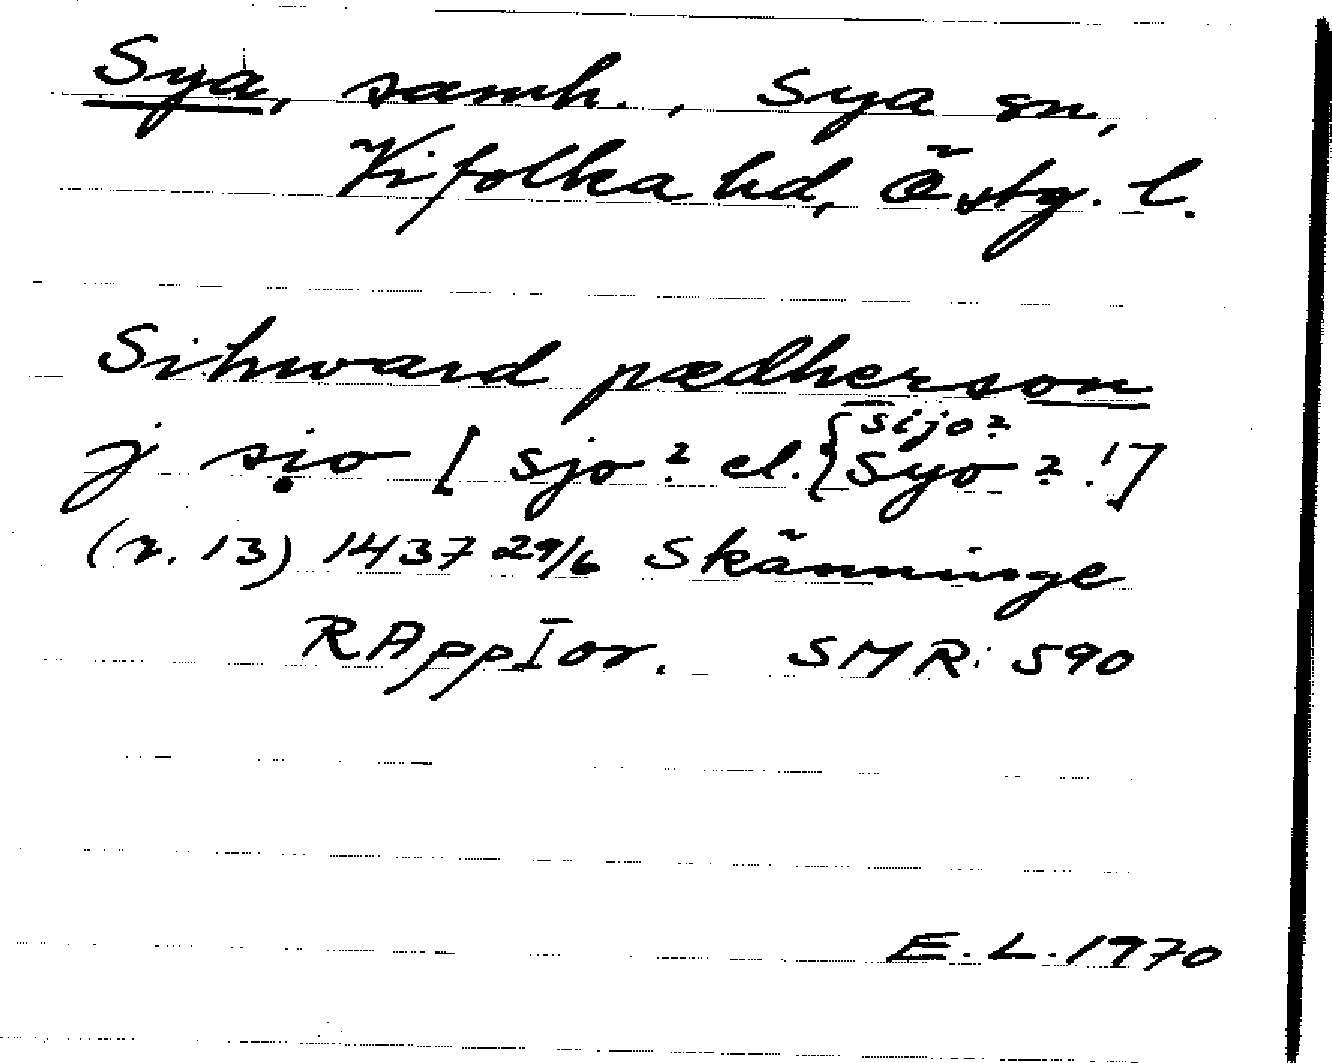 Sya, samh., Sya sn,
Vifolka hd, Östg. l.
Sihward pædherson
j sio [sjo? el. {sijo? syo?!]
(r. 13) 1437 29/6 Skänninge
RAppIor. SMR: 590
E.L. 1970